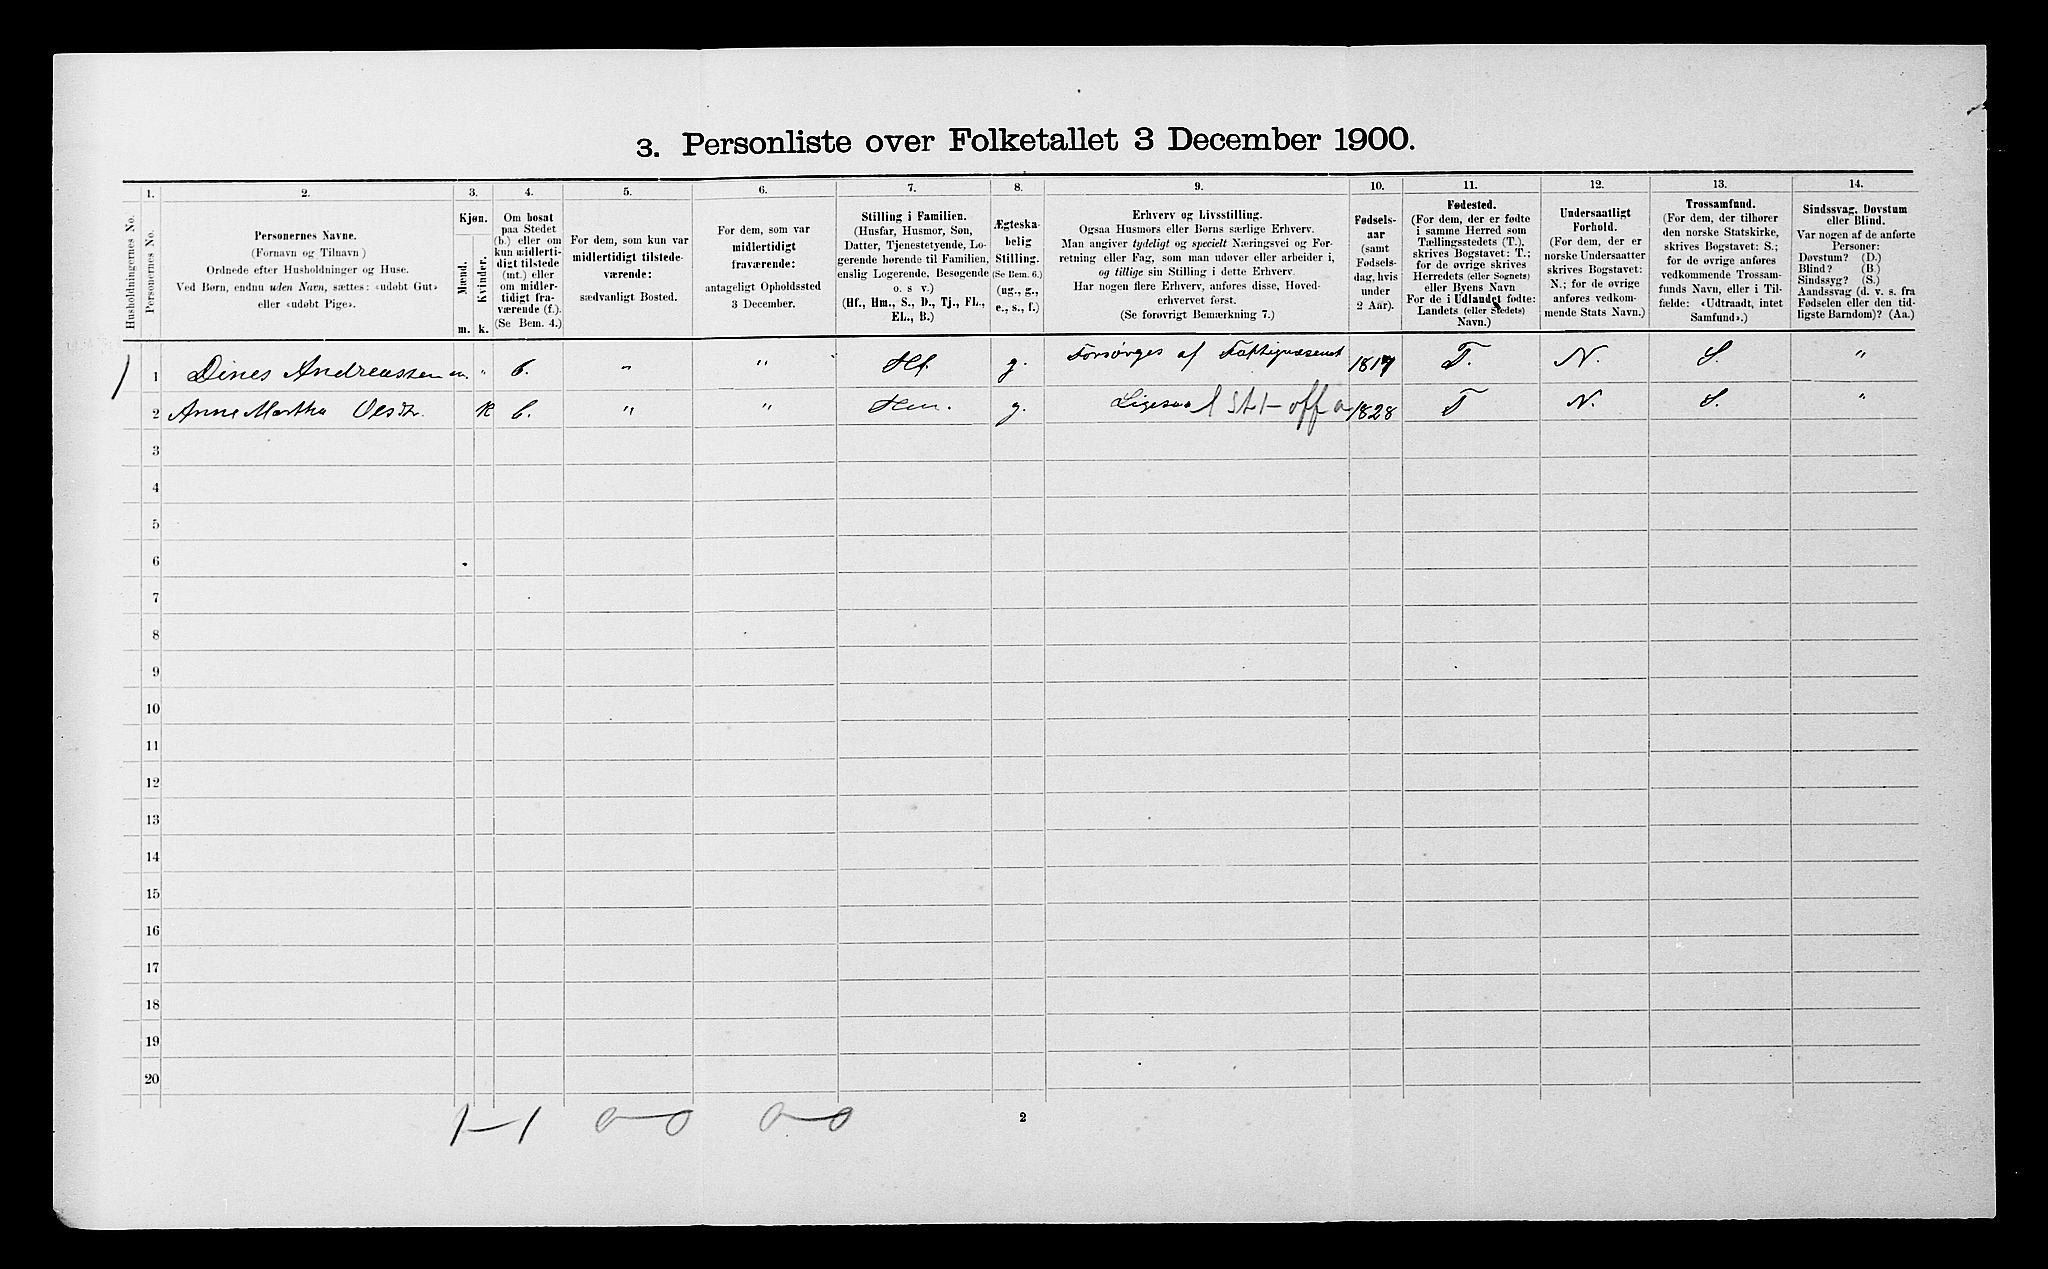 3. Personliste over Folketallet 3 December 1900.
1. 2. 3. 4. 5. 6. 7. 8. 9. 10. 11. 12. 13. 14.
Husholdningernes No.
Personernes No.
Personernes Navne.
(Fornavn og Tilnavn)
Ordnede efter Husholdninger og Huse.
Ved Børn, endnu uden Navn, sættes: «udøbt Gut»
eller «udøbt Pige».
Kjøn.
Mænd.
Kvinder.
m. k.
Om bosat
paa Stedet
(b.) eller om
kun midlerti-
digt tilstede
(mt.) eller
om midler-
tidigt fra-
værende (f.).
(Se Bem. 4.)
For dem, som kun var
midlertidigt tilstede-
værende:
sædvanligt Bosted.
For dem, som var
midlertidigt
fraværende:
antageligt Opholdssted
3 December.
Stilling i Familien.
(Husfar, Husmor, Søn,
Datter, Tjenestetyende, Lo-
gerende hørende til Familien,
enslig Logerende, Besøgende
o. s. v.)
(Hf., Hm., S., D., Tj., FL.,
EL., B.)
Ægteska-
belig
Stilling.
(Se Bem. 6.)
(ug., g.,
e., s., f.)
Erhverv og Livsstilling.
Ogsaa Husmors eller Børns særlige Erhverv.
Man angiver tydeligt og specielt Næringsvei og For-
retning eller Fag, som man udøver eller arbeider i,
og tillige sin Stilling i dette Erhverv.
Har nogen flere Erhverv, anføres disse, Hoved-
erhvervet først.
(Se forøvrigt Bemærkning 7.)
Fødsels-
aar
(samt
Fødsels-
dag, hvis
under
2 Aar).
Fødested.
(For dem, der er fødte
i samme Herred som
Tællingsstedets (T.),
skrives Bogstavet: T.;
for de øvrige skrives
Herredets (eller Sognets)
eller Byens Navn
For de i Udlandet fødte:
Landets (eller Stedets)
Navn.)
Undersaatligt
Forhold.
(For dem, der er
norske Undersaatter
skrives Bogstavet:
N.; for de øvrige
anføres vedkom-
mende Stats Navn.)
Trossamfund.
(For dem, der tilhører
den norske Statskirke,
skrives Bogstavet: S.;
for de øvrige anføres
vedkommende Trossam-
funds Navn, eller i Til-
fælde: «Udtraadt, intet
Samfund».)
Sindssvag, Døvstum
eller Blind.
Var nogen af de anførte
Personer:
Døvstum? (D.)
Blind? (B.)
Sindssyg? (S.)
Aandssvag (d. v. s. fra
Fødselen eller den tid-
ligste Barndom)? (Aa.)
1 1 Dines Andreassen m. " b. " " Hf. g. Forsørges af Fattigvæsenet 1817 T. N. S. "
2 Anne Martha Olsdtr. K b. " " Hm. g. Ligesaa 1828 T N. S. "
3
4
5
6
7
8
9
10
11
12
13
14
15
16
17
18
19
20
1—1 0—0 0—0
2